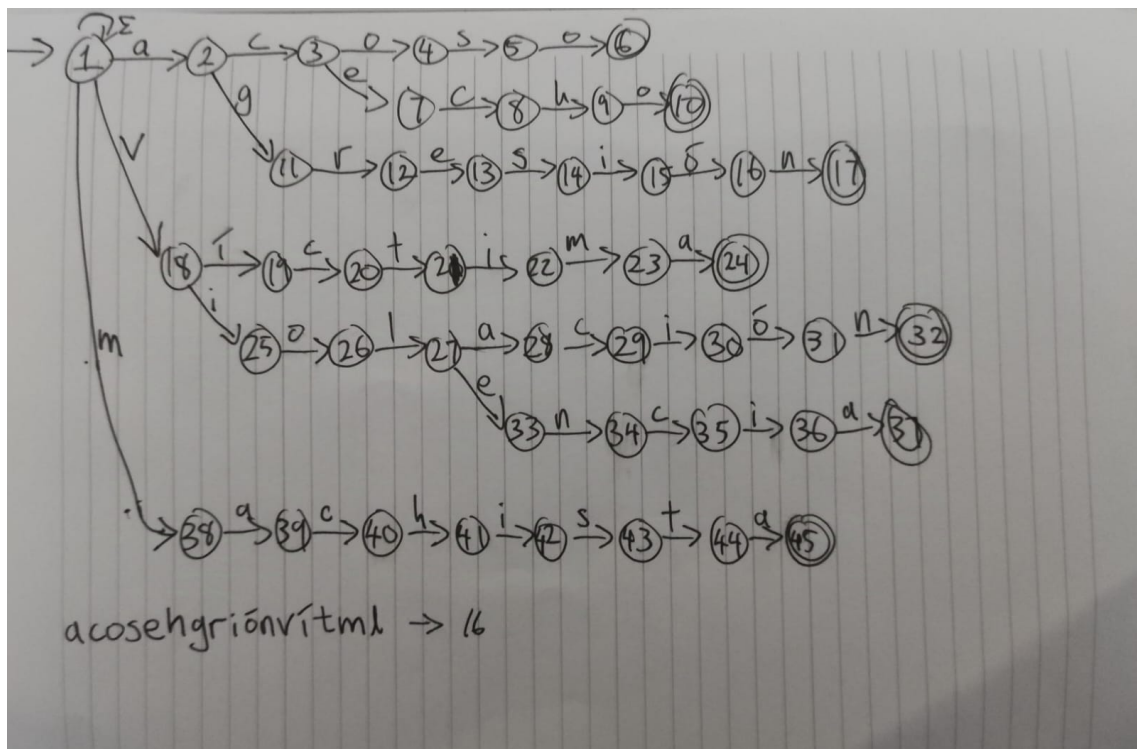 Σ
1 a 2 c 3 o 4 s 5 o 6
e 7 c 8 h 9 o 10
g 11 r 12 e 13 s 14 i 15 ó 16 n 17
V 18 í 19 c 20 t 21 i 22 m 23 a 24
i 25 o 26 l 27 a 28 c 29 i 30 ó 31 n 32
e 33 n 34 c 35 i 36 a 37
m 38 a 39 c 40 h 41 i 42 s 43 t 44 a 45
acosehgriónvítml → 16